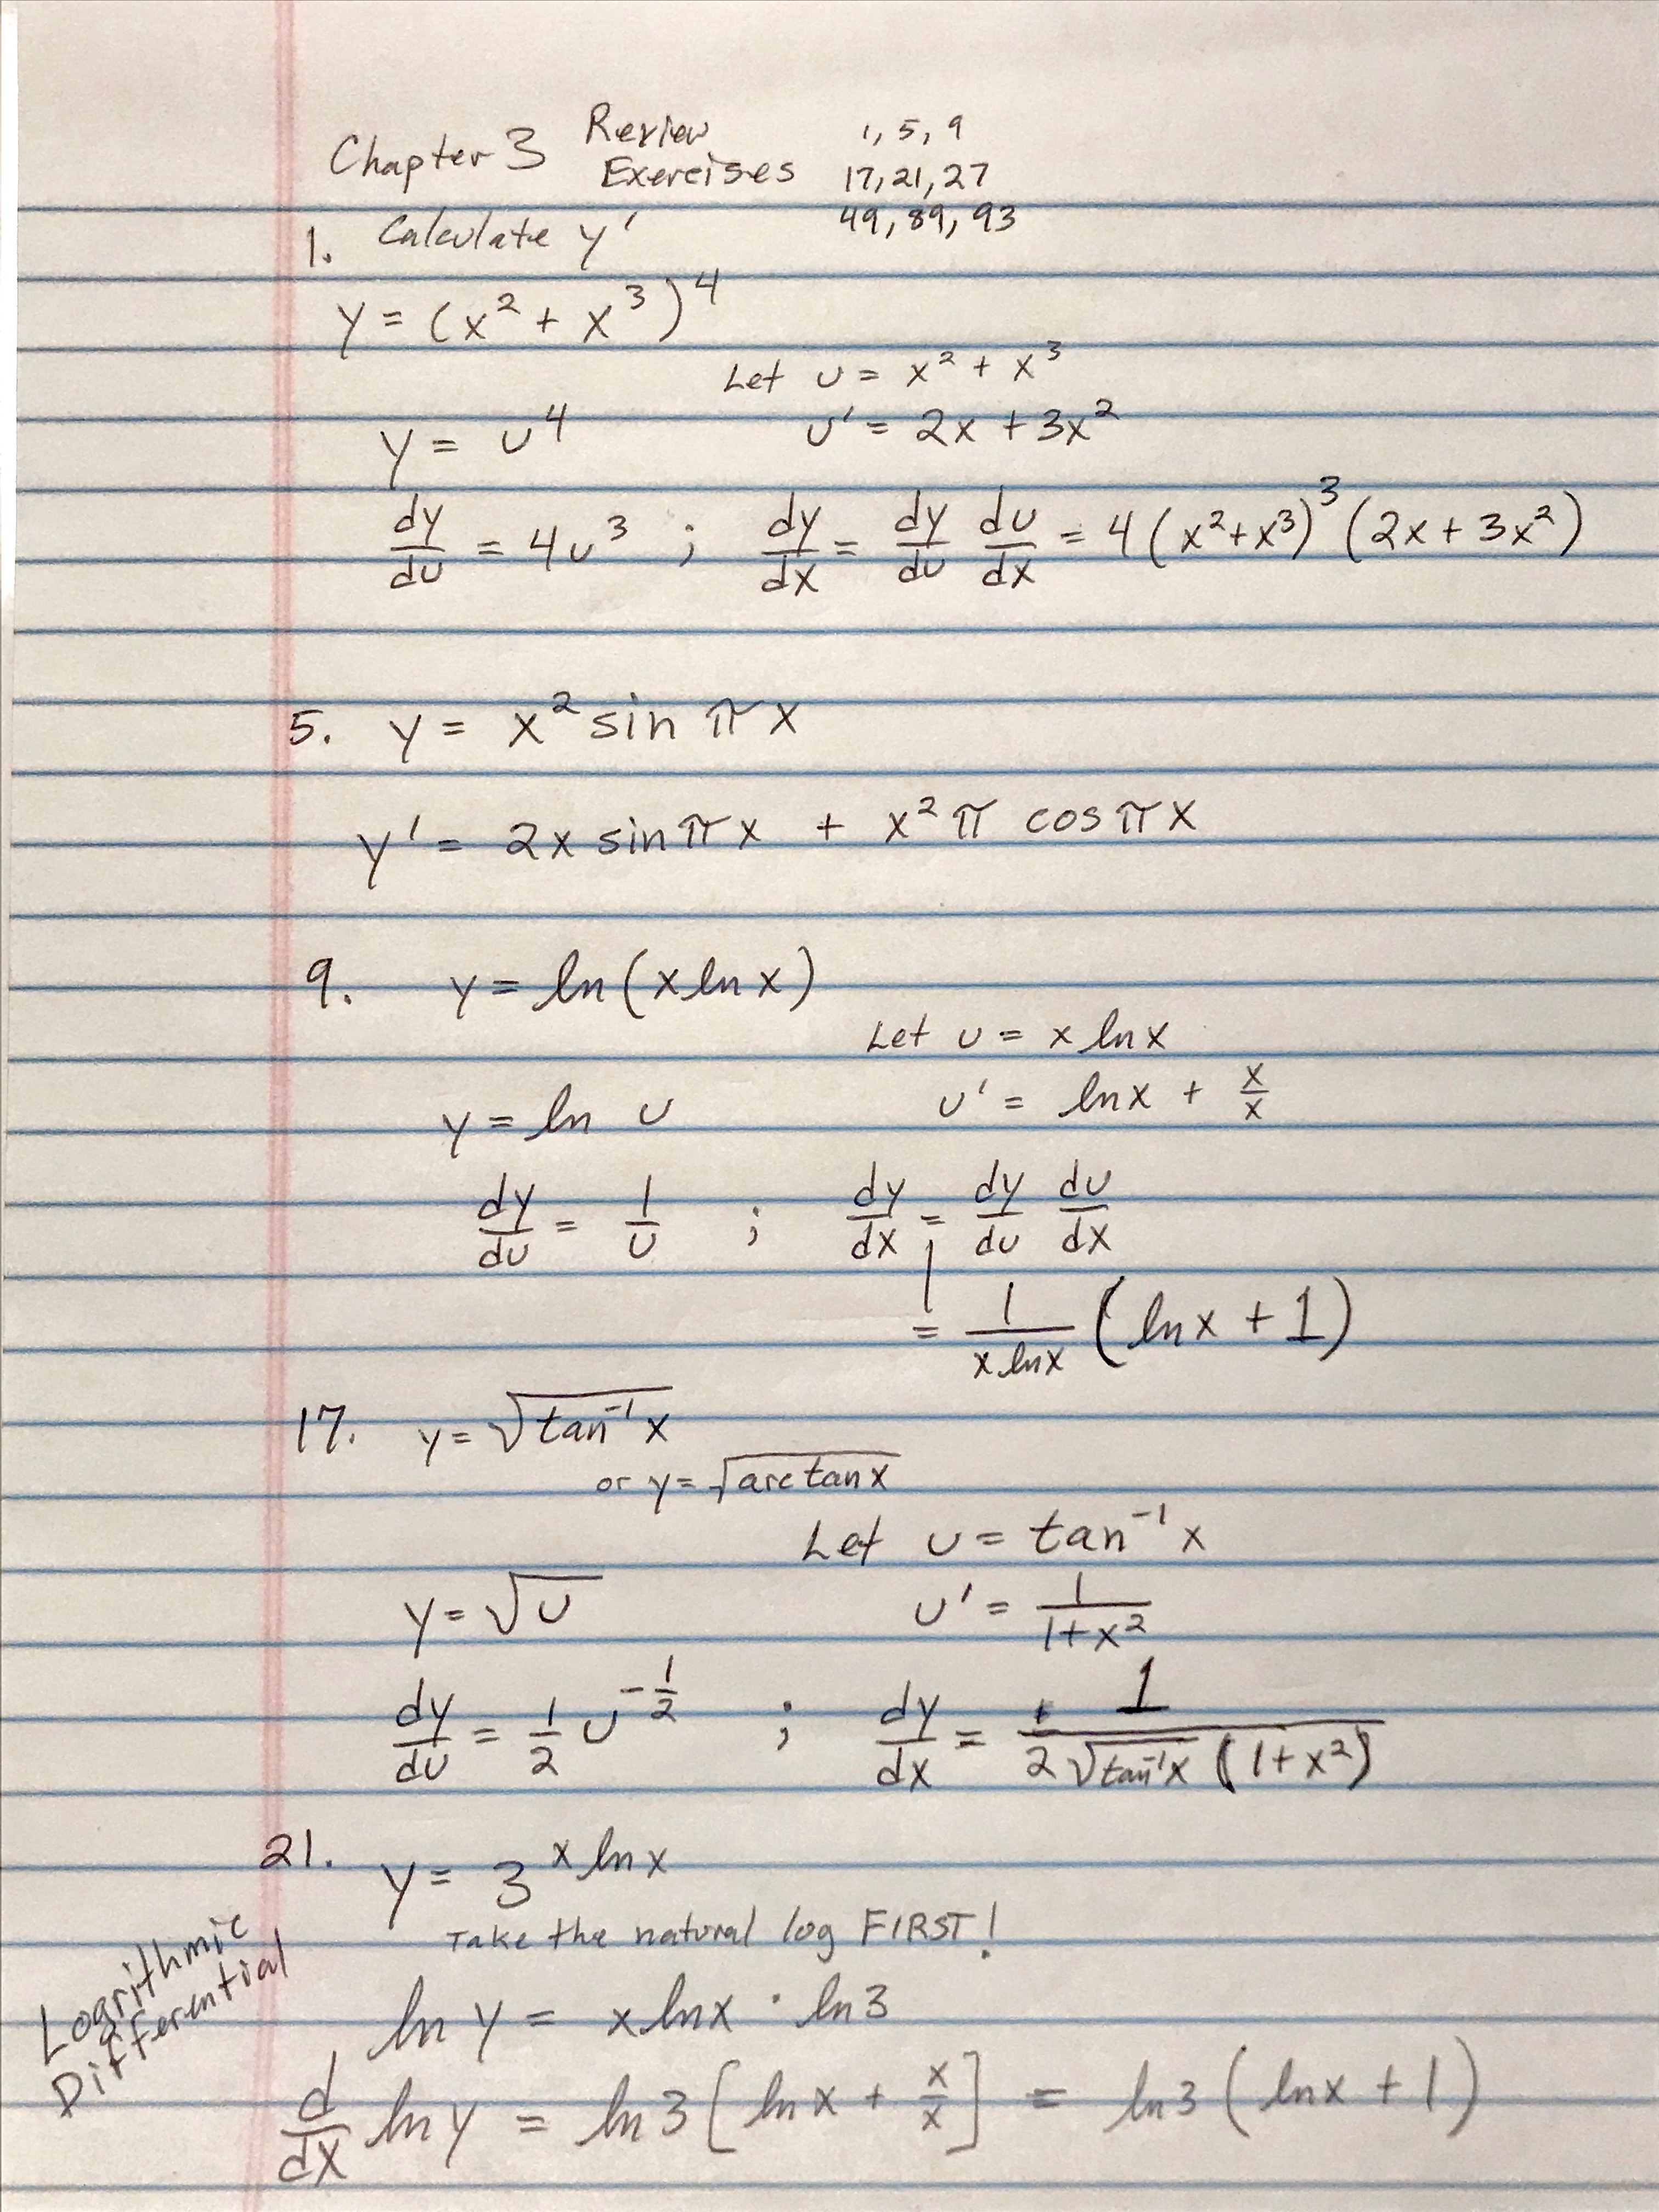 Chapter 3 Review Exercises 1, 5, 9
17, 21, 27
49, 89, 93
1. Calculate y'
y = (x² + x³)⁴
Let u = x² + x³
y = u⁴ u' = 2x + 3x²
dy/du = 4u³ ; dy/dx = dy/du du/dx = 4(x²+x³)³(2x + 3x²)
5. y = x² sin πx
y' = 2x sin πx + x² π cos πx
9. y = ln(x ln x)
Let u = x ln x
y = ln u u' = ln x + x/x
dy/du = 1/u ; dy/dx = dy/du du/dx
= 1/(x ln x) (ln x + 1)
17. y = √(tan⁻¹ x)
or y = √(arctan x)
Let u = tan⁻¹ x
y = √u u' = 1/(1+x²)
dy/du = 1/2 u^(-1/2) ; dy/dx = 1/(2√(tan⁻¹x) (1+x²))
21. y = 3^(x ln x)
Take the natural log FIRST!
Logrithmic
Differential
ln y = x ln x · ln 3
d/dx ln y = ln 3 [ln x + x/x] = ln 3 (ln x + 1)